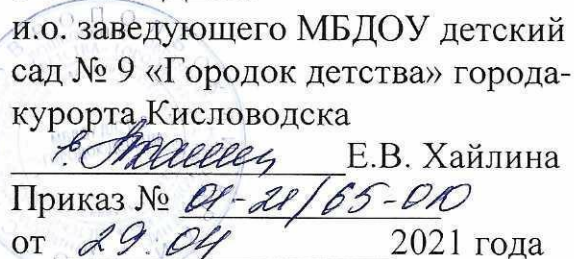 и.о. заведующего МБДОУ детский
сад № 9 «Городок детства» города-
курорта Кисловодска
Е.В. Хайлина
Приказ № 01-21/65-ОД
от 29.04 2021 года